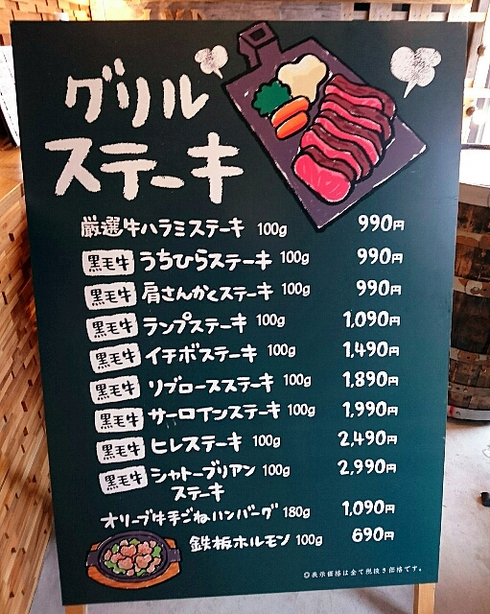 グリル
ステーキ
厳選牛ハラミステーキ 100g 990円
黒毛牛 うちひらステーキ 100g 990円
黒毛牛 肩さんかくステーキ 100g 990円
黒毛牛 ランプステーキ 100g 1,090円
黒毛牛 イチボステーキ 100g 1,490円
黒毛牛 リブロースステーキ 100g 1,890円
黒毛牛 サーロインステーキ 100g 1,990円
黒毛牛 ヒレステーキ 100g 2,490円
黒毛牛 シャトーブリアン 100g 2,990円
ステーキ
オリーブ牛手ごねハンバーグ 180g 1,090円
鉄板ホルモン 100g 690円
◎表示価格は全て税抜き価格です。